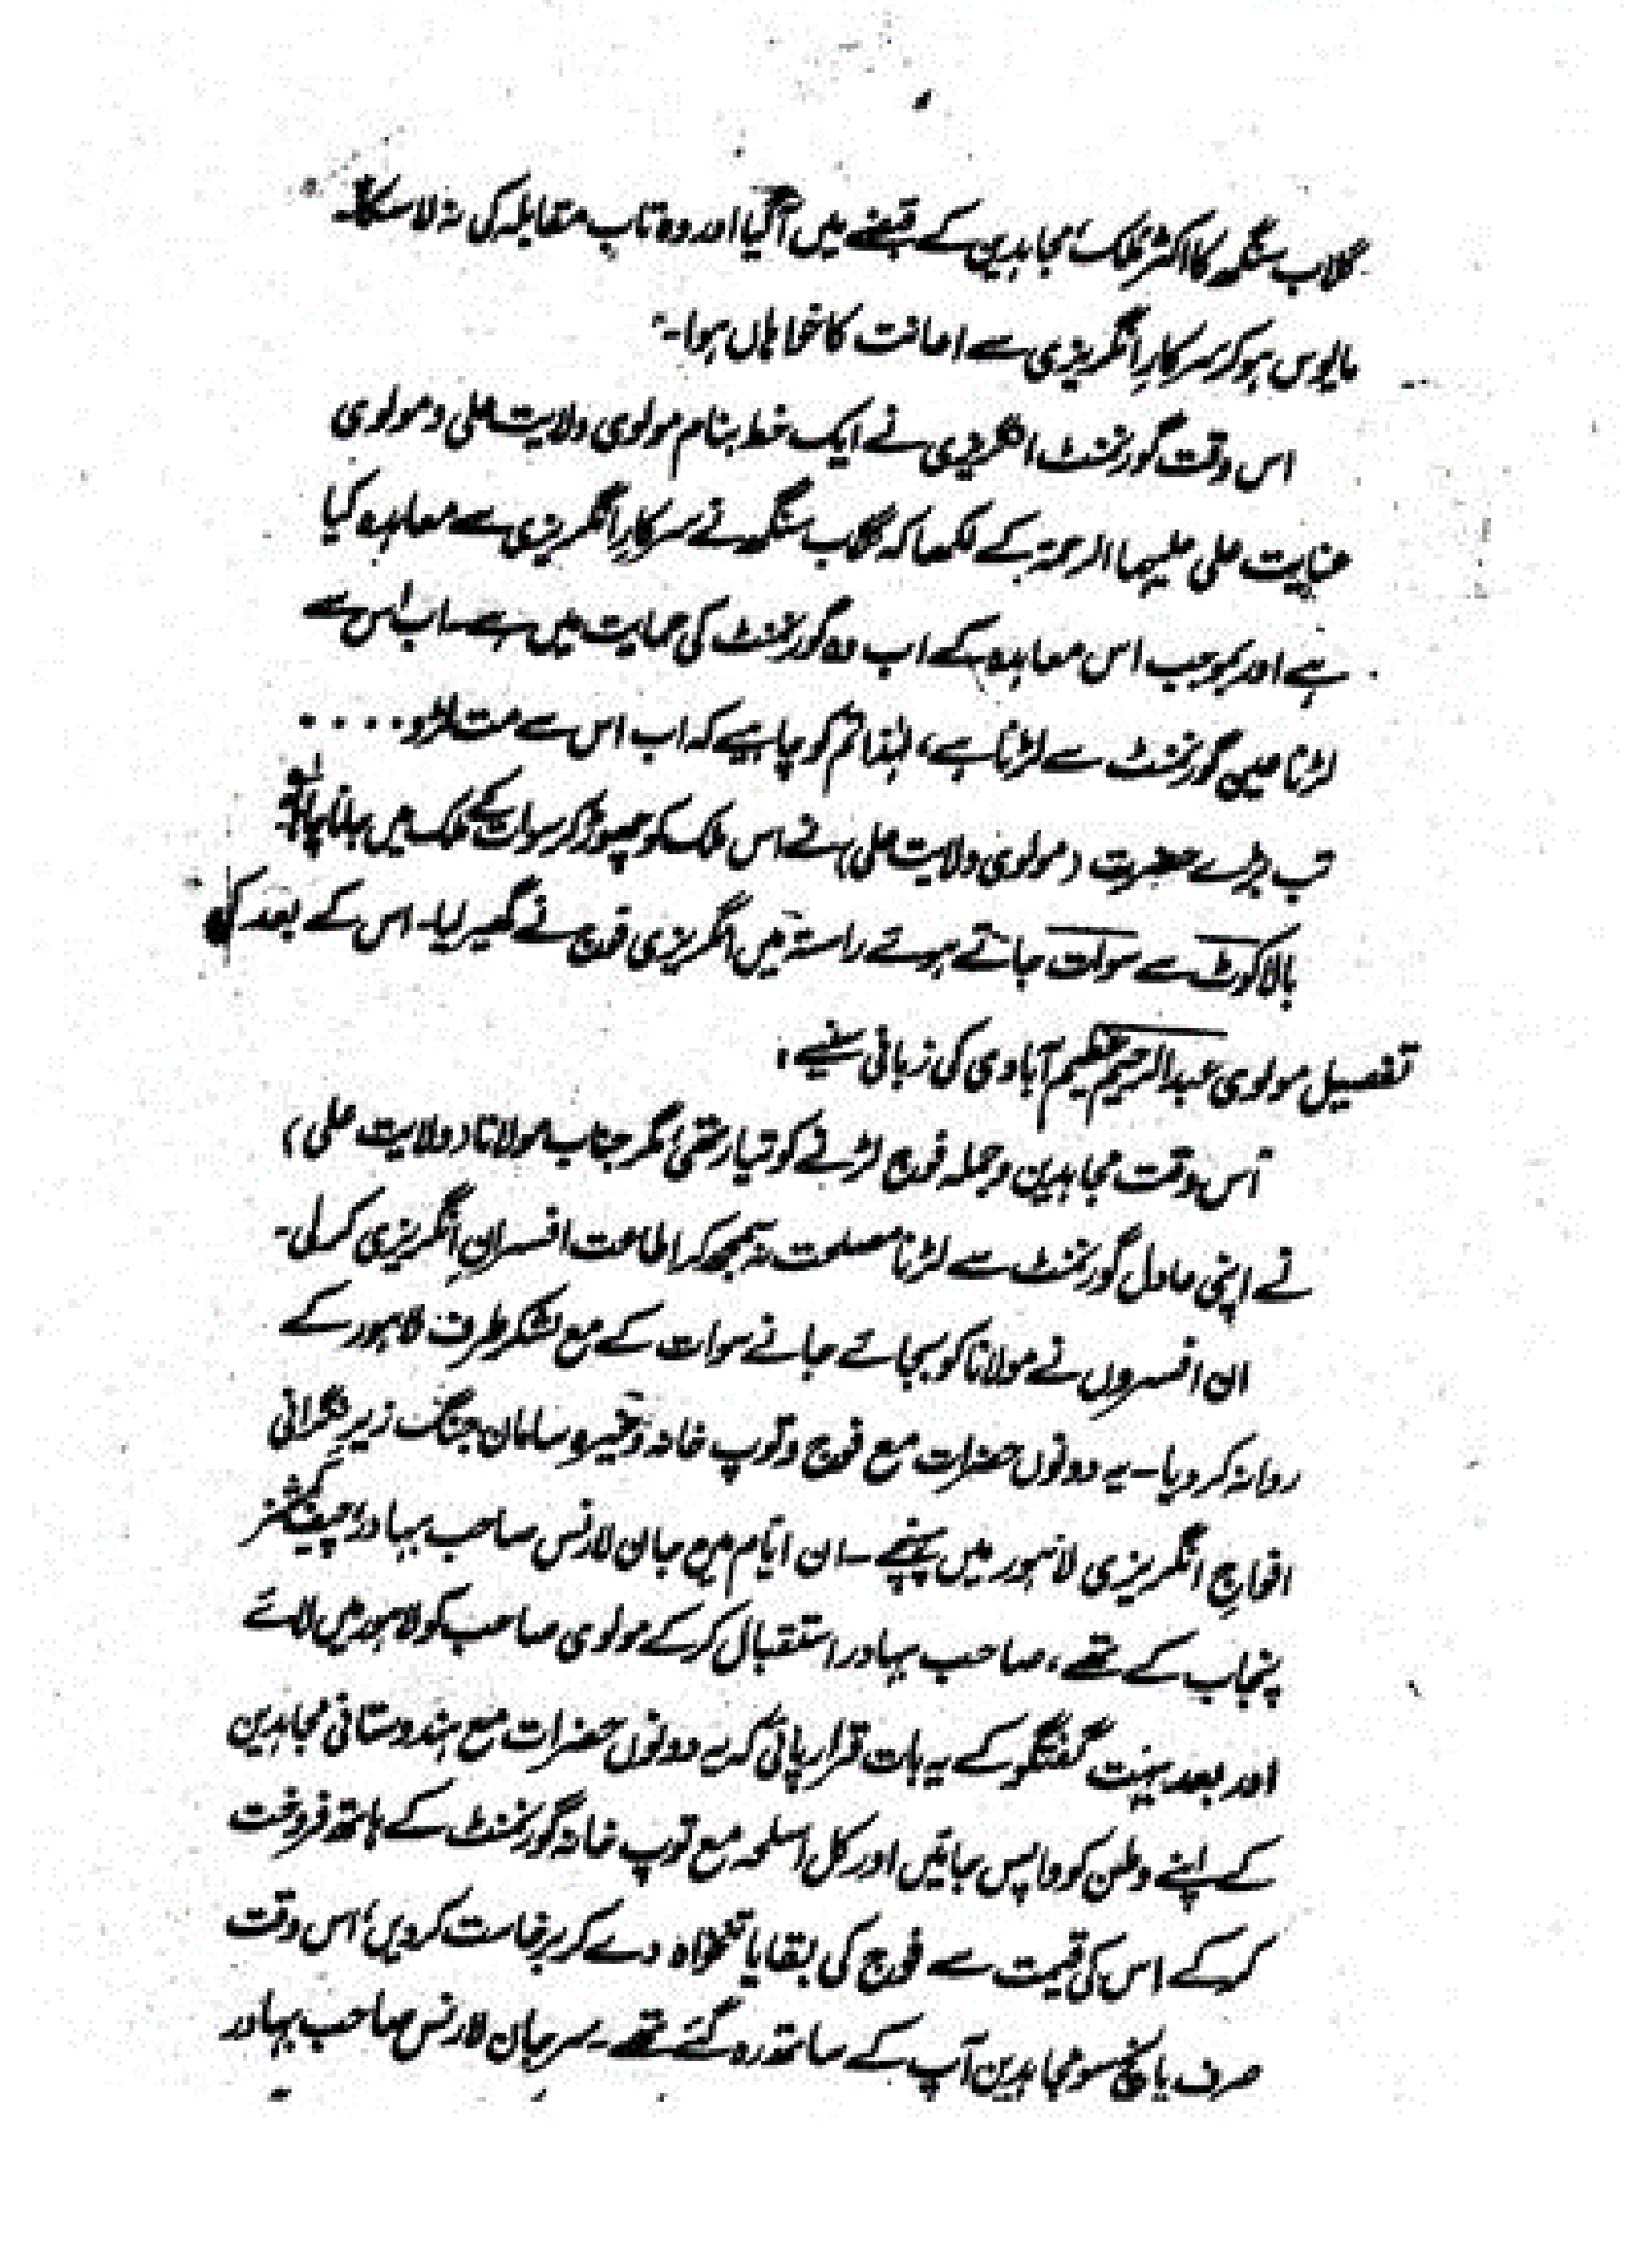 گلاب سنگھ کا اکثر ملک مجاہدین کے قبضے میں آگیا اور وہ تاب مقابلہ کی نہ لا سکا۔
مایوس ہوکر سرکارِ انگریزی سے اعانت کا خواہاں ہوا۔"
اس وقت گورنمنٹ انگریزی نے ایک خط بنام مولوی ولایت علی و مولوی
عنایت علی علیہما الرحمۃ کے لکھا کہ گلاب سنگھ نے سرکارِ انگریزی سے معاہدہ کیا
ہے اور بموجب اس معاہدہ کے اب وہ گورنمنٹ کی حمایت میں ہے۔ اب اس سے
لڑنا عین گورنمنٹ سے لڑنا ہے، لہٰذا تم کو چاہیے کہ اب اس سے مت لڑو....
تب بڑے حضرت (مولوی ولایت علی) نے اس ملک کو چھوڑ کر سوات کے ملک میں جانا چاہا
بالاکوٹ سے سوات جاتے ہوئے راستہ میں انگریزی فوج نے گھیر لیا۔ اس کے بعد کی
تفصیل مولوی عبدالرحیم عظیم آبادی کی زبانی سنیے:
اُس وقت مجاہدین و جملہ فوج لڑنے کو تیار تھی مگر جناب مولانا (ولایت علی)
نے اپنی عادل گورنمنٹ سے لڑنا مصلحت نہ سمجھ کر اطاعت افسرانِ انگریزی کر لی۔
ان افسروں نے مولانا کو بجائے جانے سوات کے مع لشکر طرف لاہور کے
روانہ کر دیا۔ یہ دونوں حضرات مع فوج و توپ خانہ وغیرہ سامان جنگ زیر نگرانی
افواجِ انگریزی لاہور میں پہنچے۔ ان ایّام میں جان لارنس صاحب بہادر چیف کمشنر
پنجاب کے تھے، صاحب بہادر استقبال کرکے مولوی صاحب کو لاہور میں لائے
اور بعد بہت گفتگو کے یہ بات قرار پائی کہ یہ دونوں حضرات مع ہندوستانی مجاہدین
کے اپنے وطن کو واپس جائیں اور کل اسلحہ مع توپ خانہ گورنمنٹ کے ہاتھ فروخت
کرکے اس کی قیمت سے فوج کی بقایا تنخواہ دے کر برخاست کر دیں، اس وقت
صرف پانچ سو مجاہدین آپ کے ساتھ رہ گئے تھے۔ سرجان لارنس صاحب بہادر